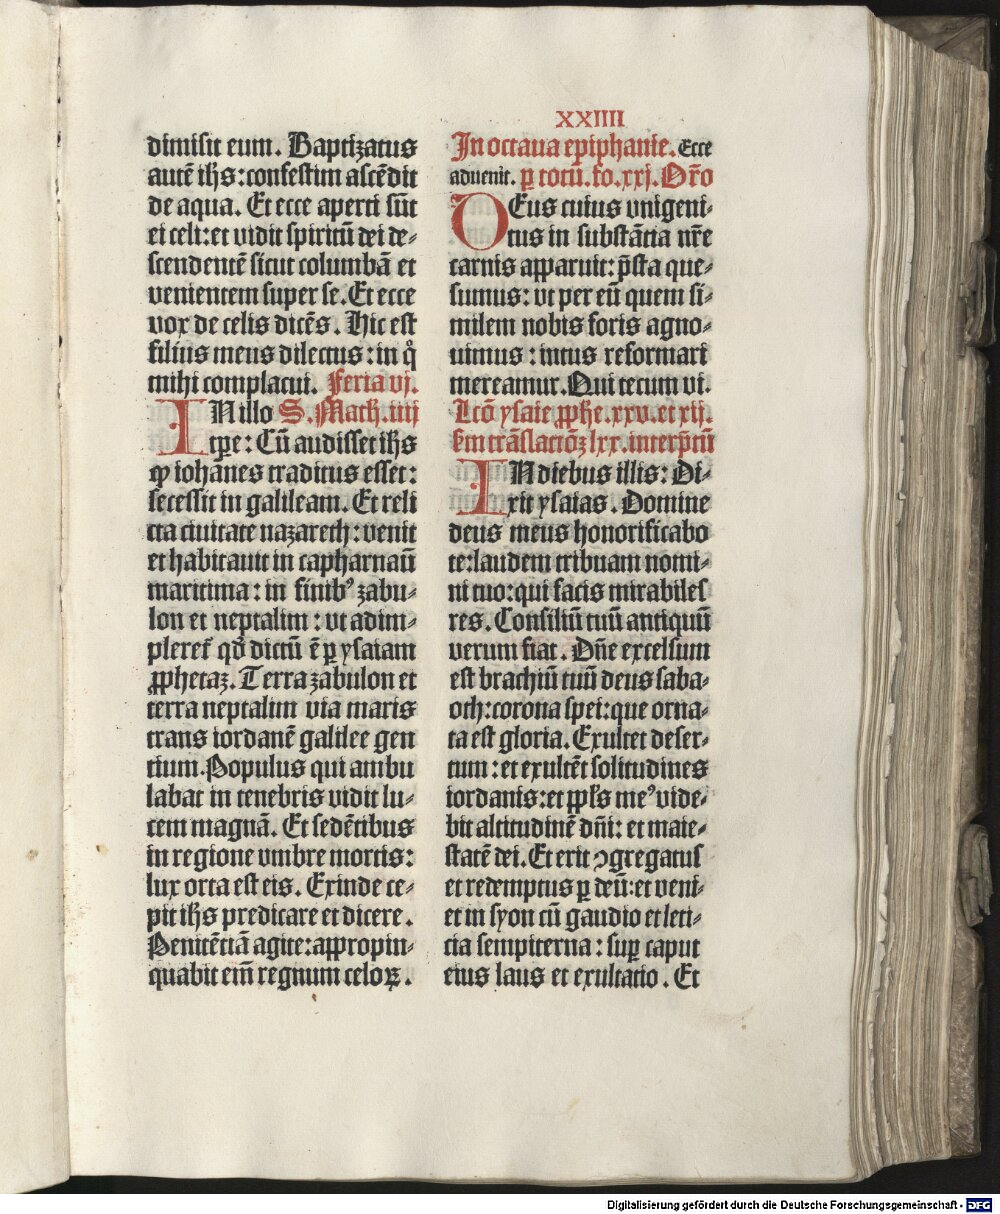 XXIIII
dimisit eum. Baptizatus
autē ih̄s: confestim ascēdit
de aqua. Et ecce aperti sūt
ei celi: et vidit spiritū dei de⸗
scendentē sicut columbā et
venientem super se. Et ecce
vox de celis dicēs. Hic est
filius meus dilectus: in q̊
mihi complacui. Feria vj.
IN illo S. Math̄. iiij
tꝑe: Cū audisset ih̄s
ꝙ iohānes traditus esset:
secessit in galileam. Et reli
cta ciuitate nazareth: venit
et habitauit in capharnaū
maritima: in finibꝰ zabu⸗
lon et neptalim: vt adim⸗
pleret᷑ qḋ dictū ē ꝑ ysaiam
ꝓphetaꝫ. Terra zabulon et
terra neptalim via maris
trans iordanē galilee gen
tium. Populus qui ambu
labat in tenebris vidit lu⸗
cem magnā. Et sedētibus
in regione vmbre mortis:
lux orta est eis. Exinde ce⸗
pit ih̄s predicare et dicere.
Penitētiā agite: appropin⸗
quabit em̄ regnum celoꝝ.
In octaua epiphanie. Ecce
aduenit. ꝑ totū. fo. xxj. Or̄o
DEus cuius vnigeni⸗
tus in substātia nr̄e
carnis apparuit: p̄sta que⸗
sumus: vt per eū quem si⸗
milem nobis foris agno⸗
uimus: intus reformari
mereamur. Qui tecum vi.
Lc̄o ysaie ꝓphe. xxv. et xij.
s̄m trāslatiōꝫ lxx. interp̄tū
IN diebus illis: Di⸗
xit ysaias. Domine
deus meus honorificabo
te: laudem tribuam nomi⸗
ni tuo: qui facis mirabiles
res. Consiliū tuū antiquū
verum fiat. Dn̄e excelsum
est brachiū tuū deus saba⸗
oth: corona spei: que orna⸗
ta est gloria. Exultet deser⸗
tum: et exultēt solitudines
iordanis: et ppl̄s meꝰ vide⸗
bit altitudinē dn̄i: et maie⸗
statē dei. Et erit ꝯgregatus
et redemptus ꝑ deū: et veni⸗
et in syon cū gaudio et leti⸗
cia sempiterna: suꝑ caput
eius laus et exultatio. Et
Digitalisierung gefördert durch die Deutsche Forschungsgemeinschaft - DFG